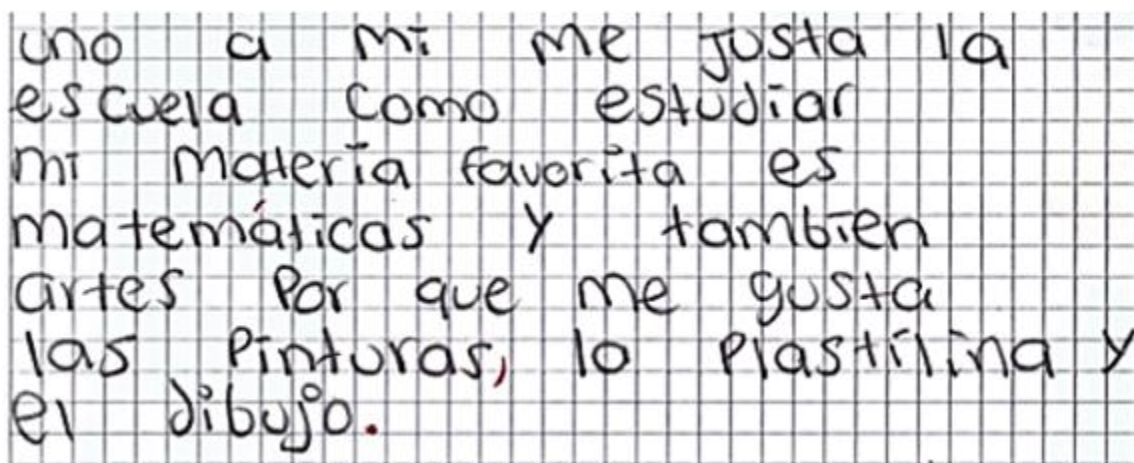 uno a mi me justa la
escuela como estudiar
mi materia favorita es
matemáticas y tambien
artes por que me gusta
las pinturas, lo plastilina y
el dibujo.